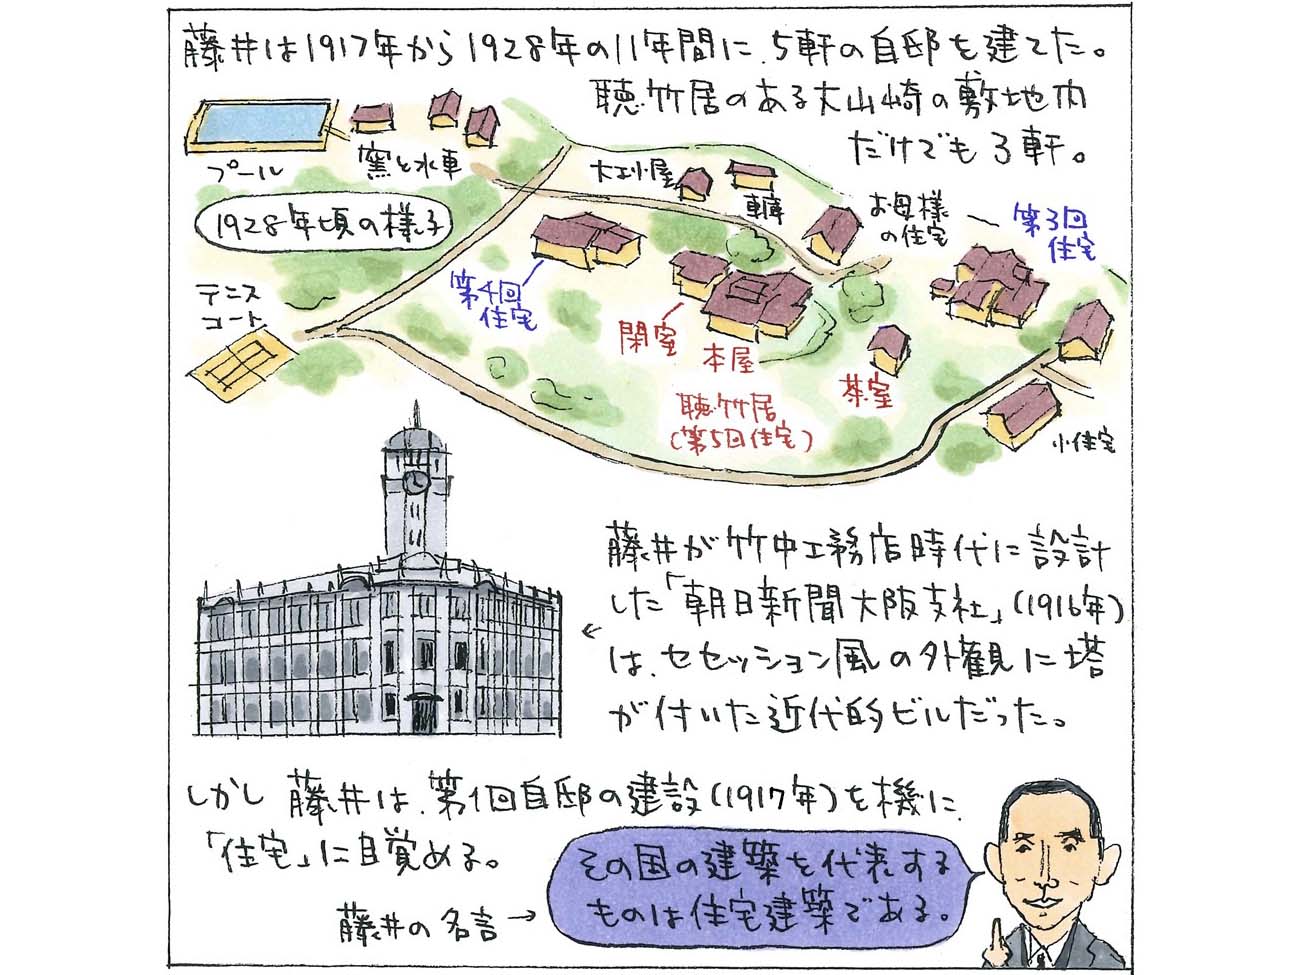 藤井は1917年から1928年の11年間に、5軒の自邸を建てた。
聴竹居のある大山崎の敷地内
だけでも3軒。
プール
窯と水車
大工小屋
車庫
お母様
の住宅
第3回
住宅
1928年頃の様子
テニス
コート
第4回
住宅
閑室
本屋
茶室
聴竹居
(第5回住宅)
小住宅
藤井が竹中工務店時代に設計
した「朝日新聞大阪支社」(1916年)
は、セセッション風の外観に塔
が付いた近代的ビルだった。
しかし藤井は、第1回自邸の建設(1917年)を機に、
「住宅」に目覚める。
藤井の名言→
その国の建築を代表する
ものは住宅建築である。